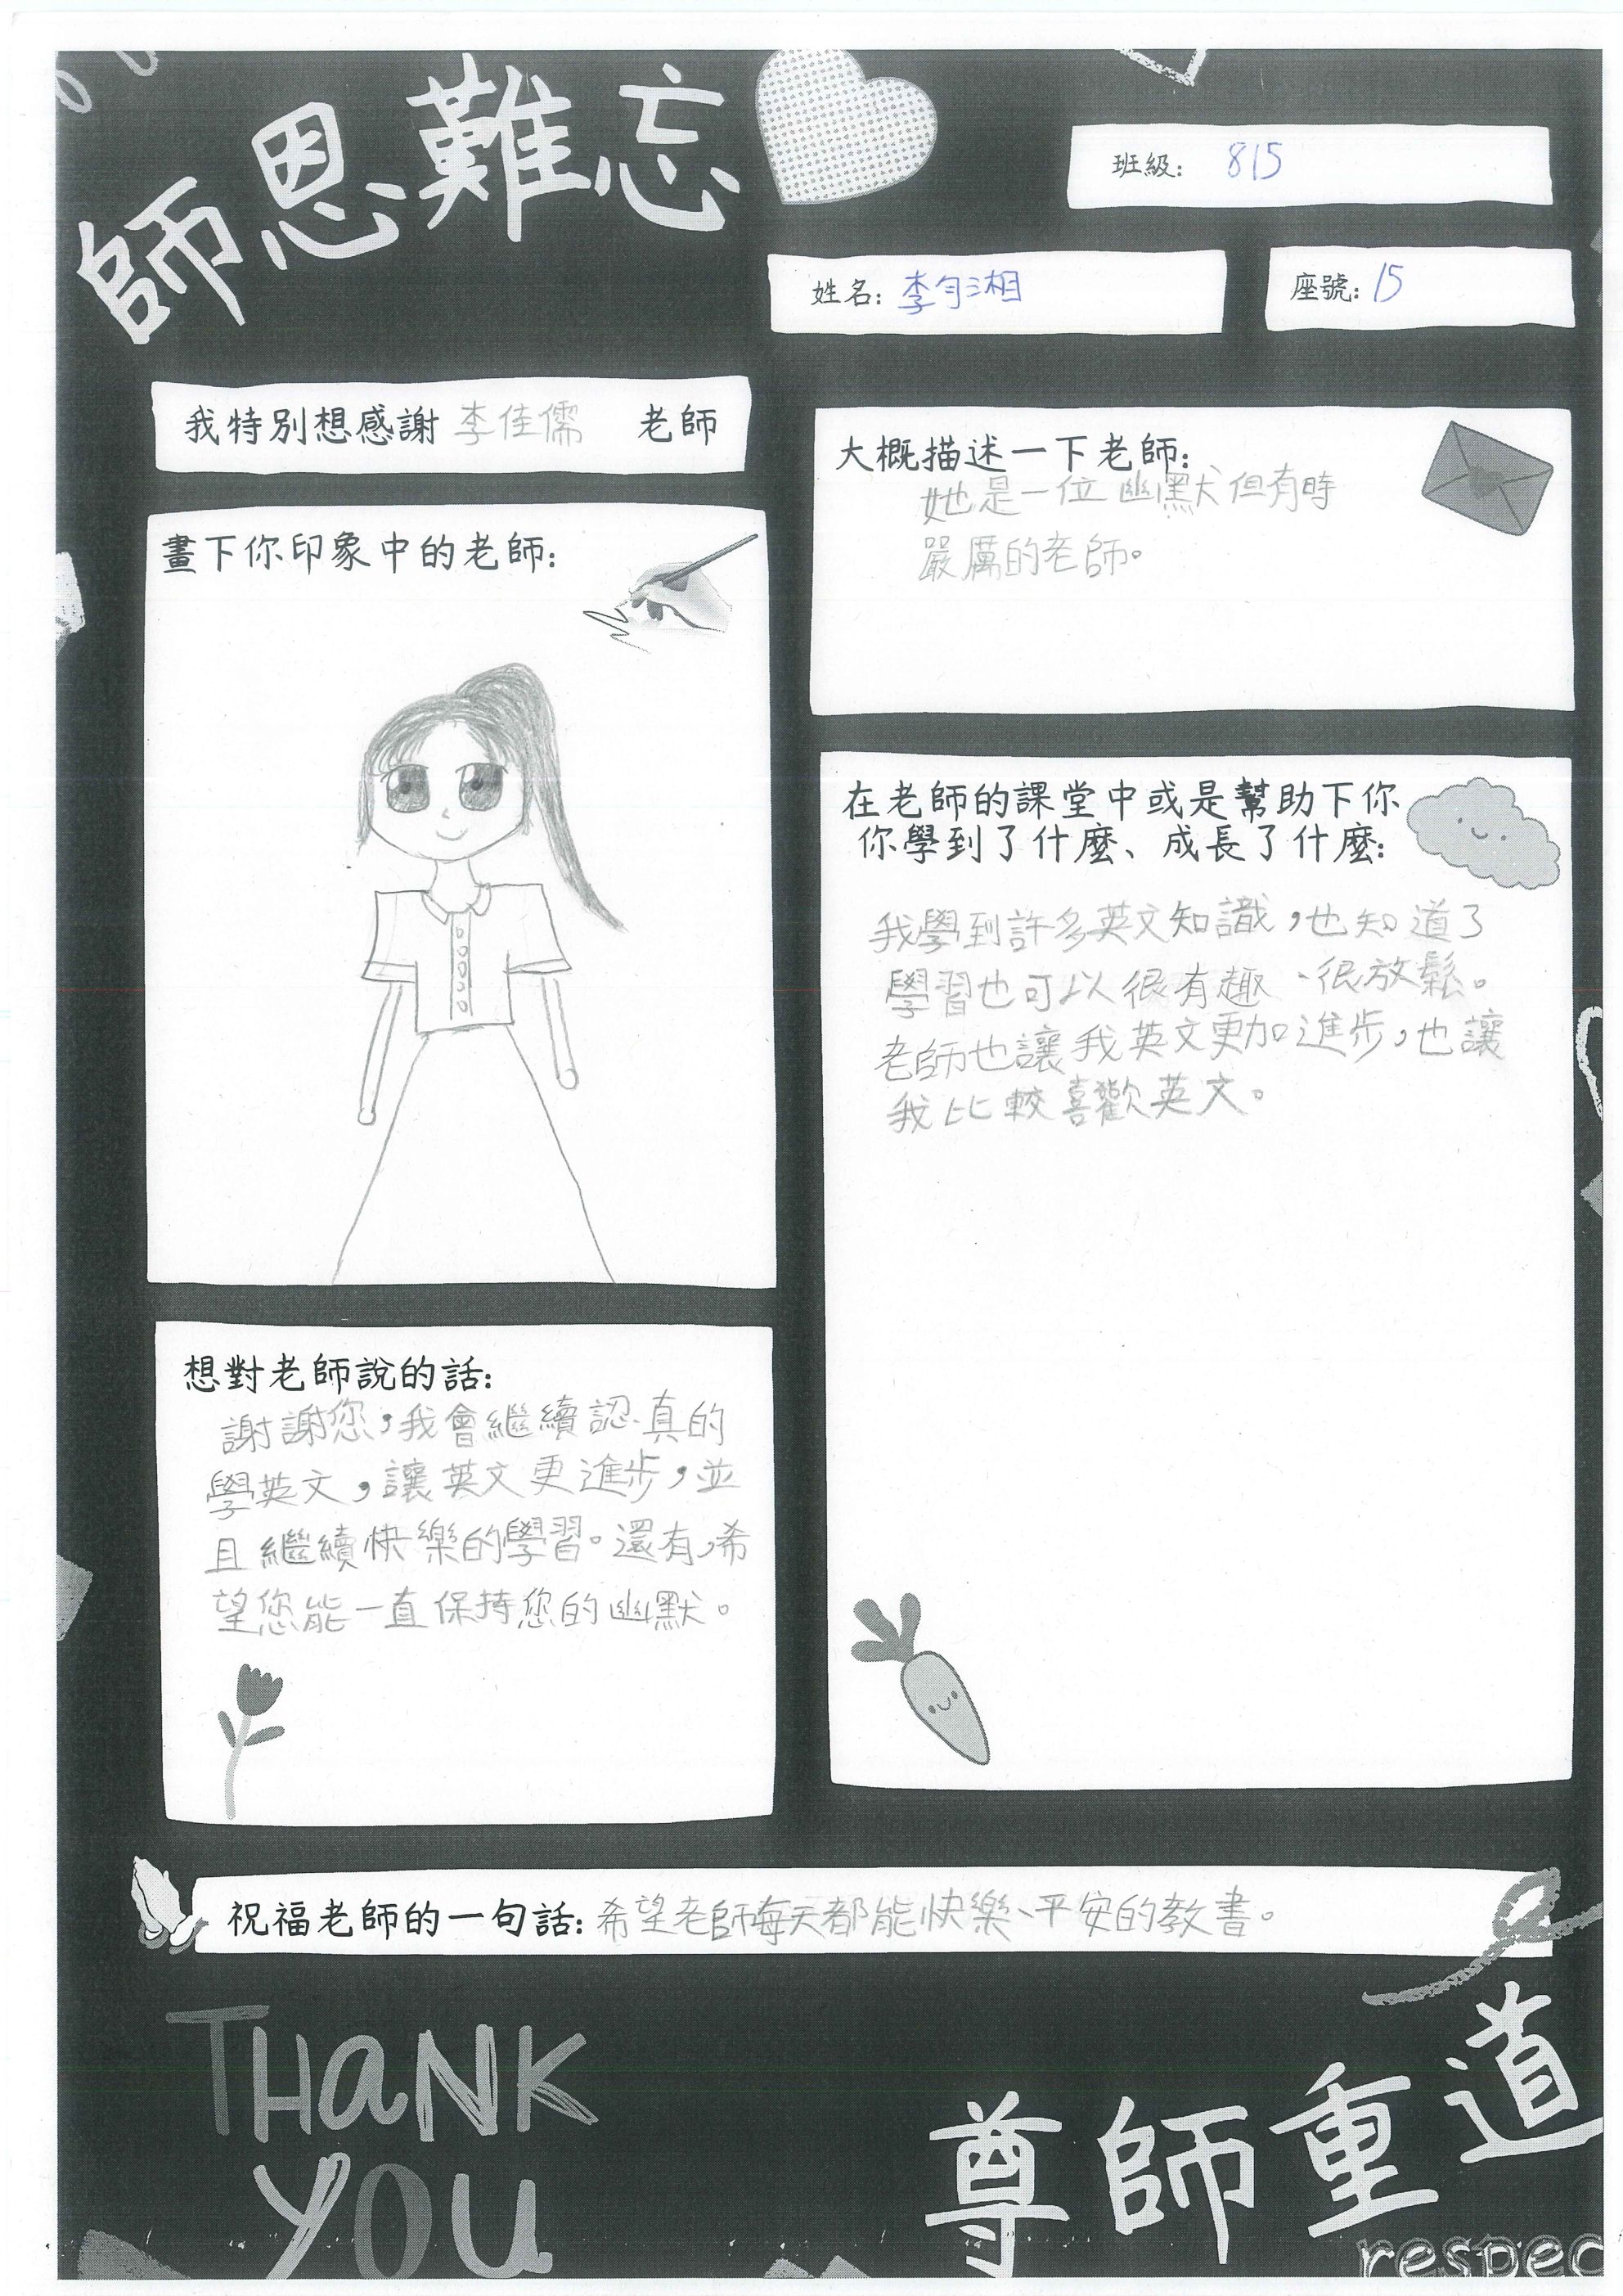 師恩難忘
班級： 815
姓名： 李勻湘
座號： 15
我特別想感謝 李佳儒 老師
畫下你印象中的老師：
大概描述一下老師：
她是一位幽默但有時
嚴厲的老師。
在老師的課堂中或是幫助下你
你學到了什麼、成長了什麼：
我學到許多英文知識，也知道了
學習也可以很有趣、很放鬆。
老師也讓我英文更加進步，也讓
我比較喜歡英文。
想對老師說的話：
謝謝您，我會繼續認真的
學英文，讓英文更進步，並
且繼續快樂的學習。還有，希
望您能一直保持您的幽默。
祝福老師的一句話：希望老師每天都能快樂、平安的教書。
THANK
YOU
尊師重道
respec